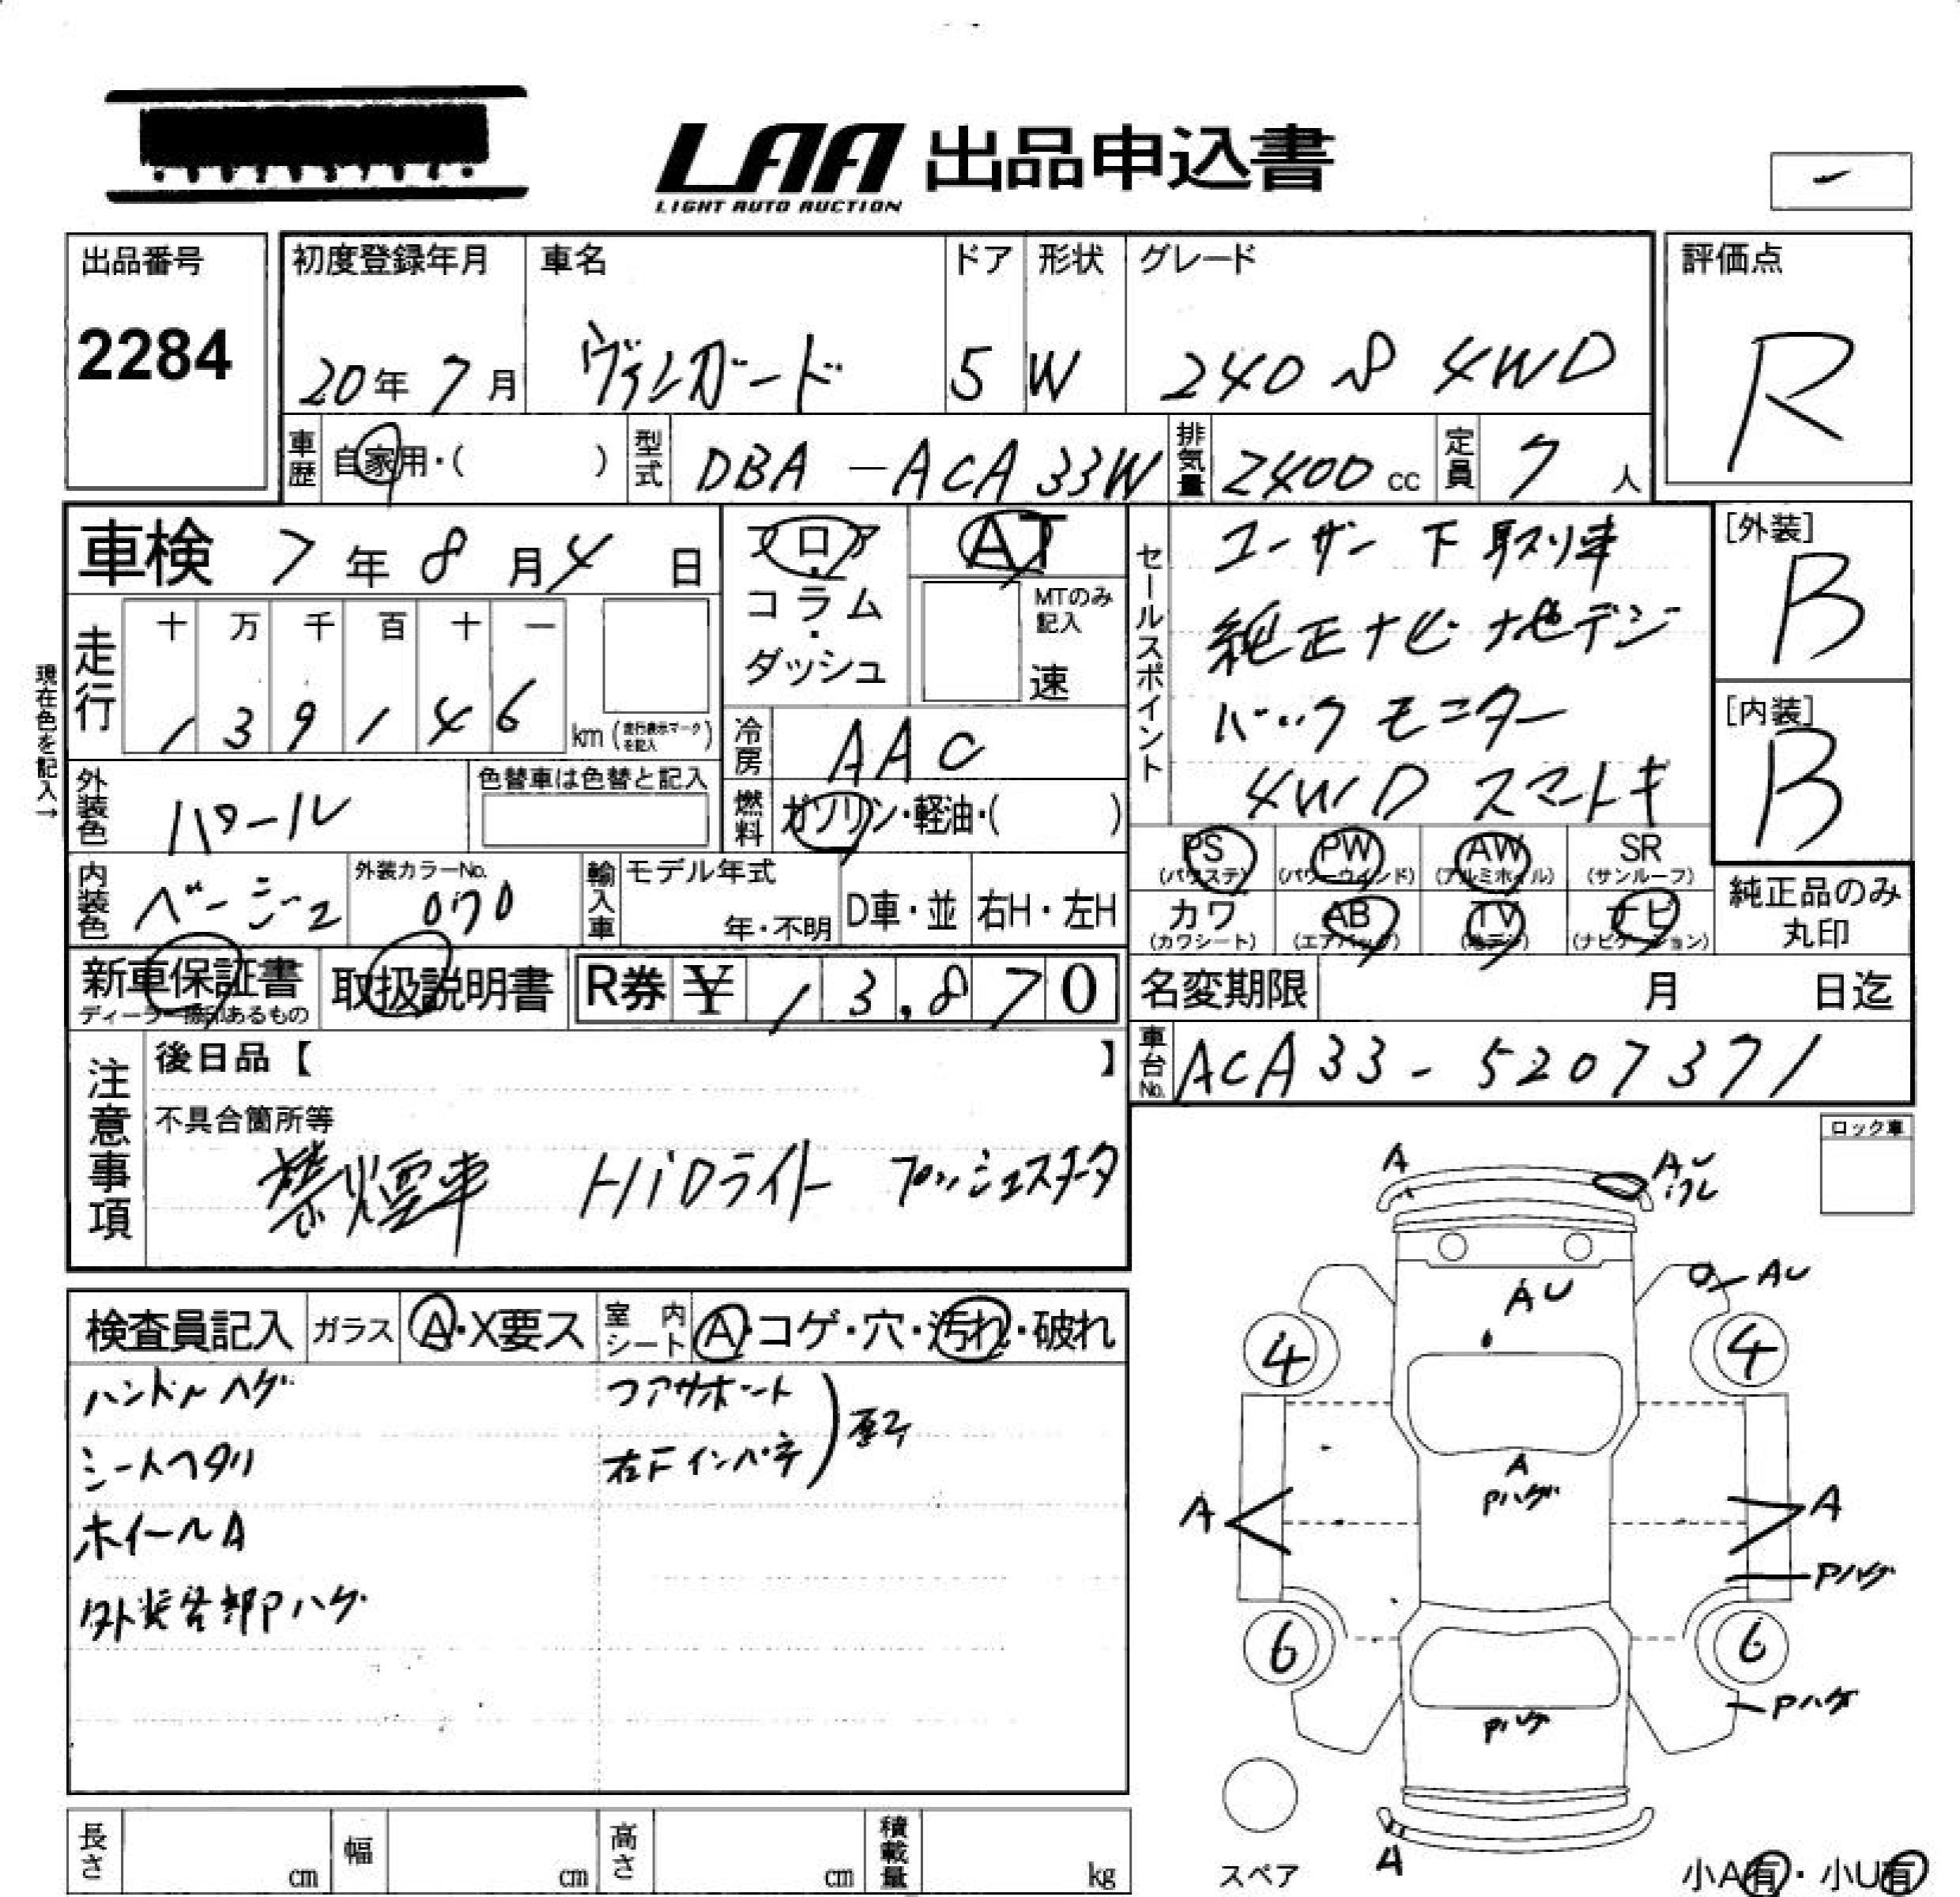 LAA 出品申込書
LIGHT AUTO AUCTION
出品番号
2284
初度登録年月
20年 7月
車名
ヴァンガード
ドア
5
形状
W
グレード
240 S 4WD
評価点
R
車歴
自家用・( )
型式
DBA-ACA33W
排気量
2400 cc
定員
7 人
車検 7年 8月 4日
フロア
コラム
ダッシュ
AT
MTのみ
記入
速
セールスポイント
ユーザー下取り車
純正ナビ 地デジ
バックモニター
4WD スマートキ
[外装]
B
[内装]
B
現在色を記入→
走行
十 万 千 百 十 一
1 3 9 1 4 6
km (走行表示マークを記入)
冷房
AAC
外装色
パール
色替車は色替と記入
燃料
ガソリン・軽油・( )
PS
(パワステ)
PW
(パワーウインド)
AW
(アルミホイル)
SR
(サンルーフ)
内装色
ベージュ
外装カラーNo.
070
輸入車
モデル年式
年・不明
D車・並
右H・左H
カワ
(カワシート)
AB
(エアバック)
TV
(地デジ)
ナビ
(ナビゲーション)
純正品のみ
丸印
新車保証書
取扱説明書
R券 ¥ 1 3,8 7 0
名変期限 月 日迄
車台No.
ACA33-5207371
注意事項
後日品【 】
不具合箇所等
禁煙車 HiDライト プッシュスタータ
ロック車
検査員記入
ガラス
A・X要ス
室内シート
A・コゲ・穴・汚れ・破れ
ハンドルハゲ
シートヘタリ
ホイールA
外装各部Pハゲ
コアサポート
右Fインパネ
A
AU
ワレ
AU
AU
4
4
A
Pハゲ
A
A
Pハゲ
6
6
Pハゲ
Pハゲ
A
スペア
小A有・小U有
長さ cm
幅 cm
高さ cm
積載量 kg